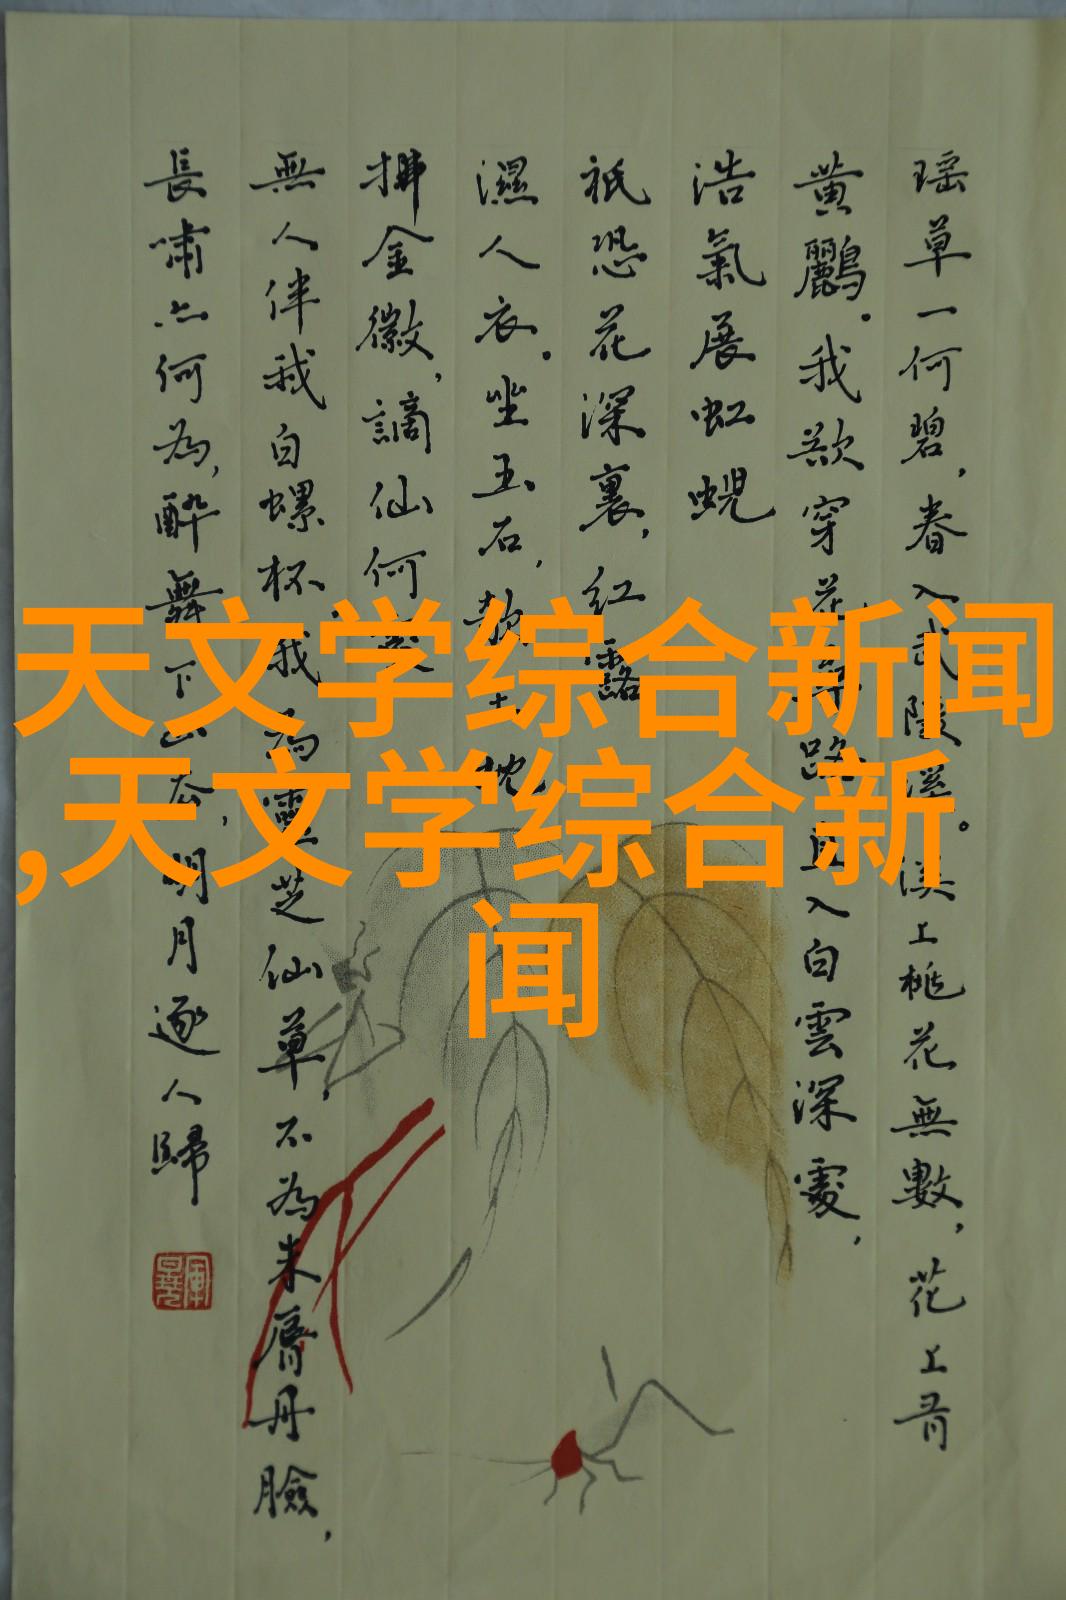 天文学综合新闻
,天文学综合新
闻
瑶草一何碧，春入武陵溪。溪上桃花無數，花上有
黄鸝。我欲穿花尋路直入白雲深處，
浩氣展虹蜺
祇恐花深裏，紅露
濕人衣。坐玉石，欹玉枕
拂金徽，謫仙何處
無人伴我白螺杯，我為靈芝仙草，不為朱唇丹臉，
長嘯亦何為，醉舞下山去，明月逐人歸